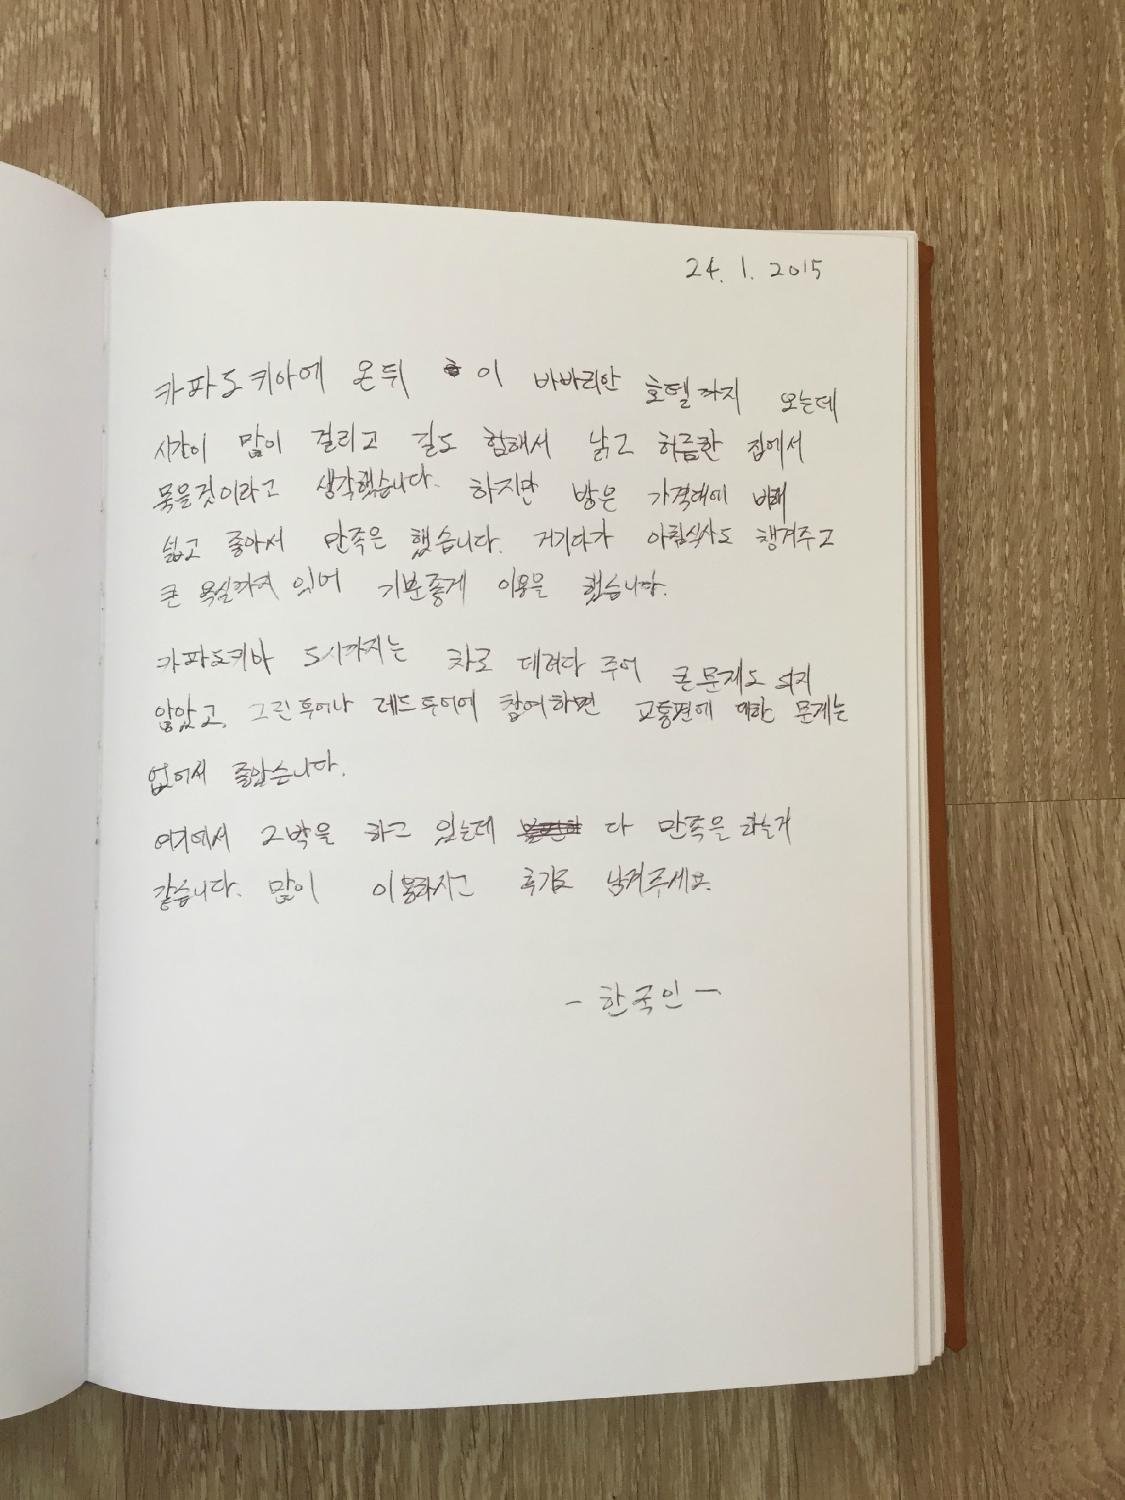 24. 1. 2015
카파도키아에 온뒤 이 바바리안 호텔까지 오는데
시간이 많이 걸리고 길도 험해서 낡고 허름한 집에서
묵을것이라고 생각했습니다. 하지만 방은 가격대에 비해
넓고 좋아서 만족은 했습니다. 거기다가 아침식사도 챙겨주고
큰 욕실까지 있어 기분좋게 이용을 했습니다.
카파도키아 도시까지는 차로 데려다 주어 큰문제도 되지
않았고, 그린투어나 레드투어에 참여하면 교통편에 대한 문제는
없어서 좋았습니다.
여기에서 2박을 하고 있는데 다 만족을 하는거
같습니다. 많이 이용하시고 후기도 남겨주세요.
- 한국인 -